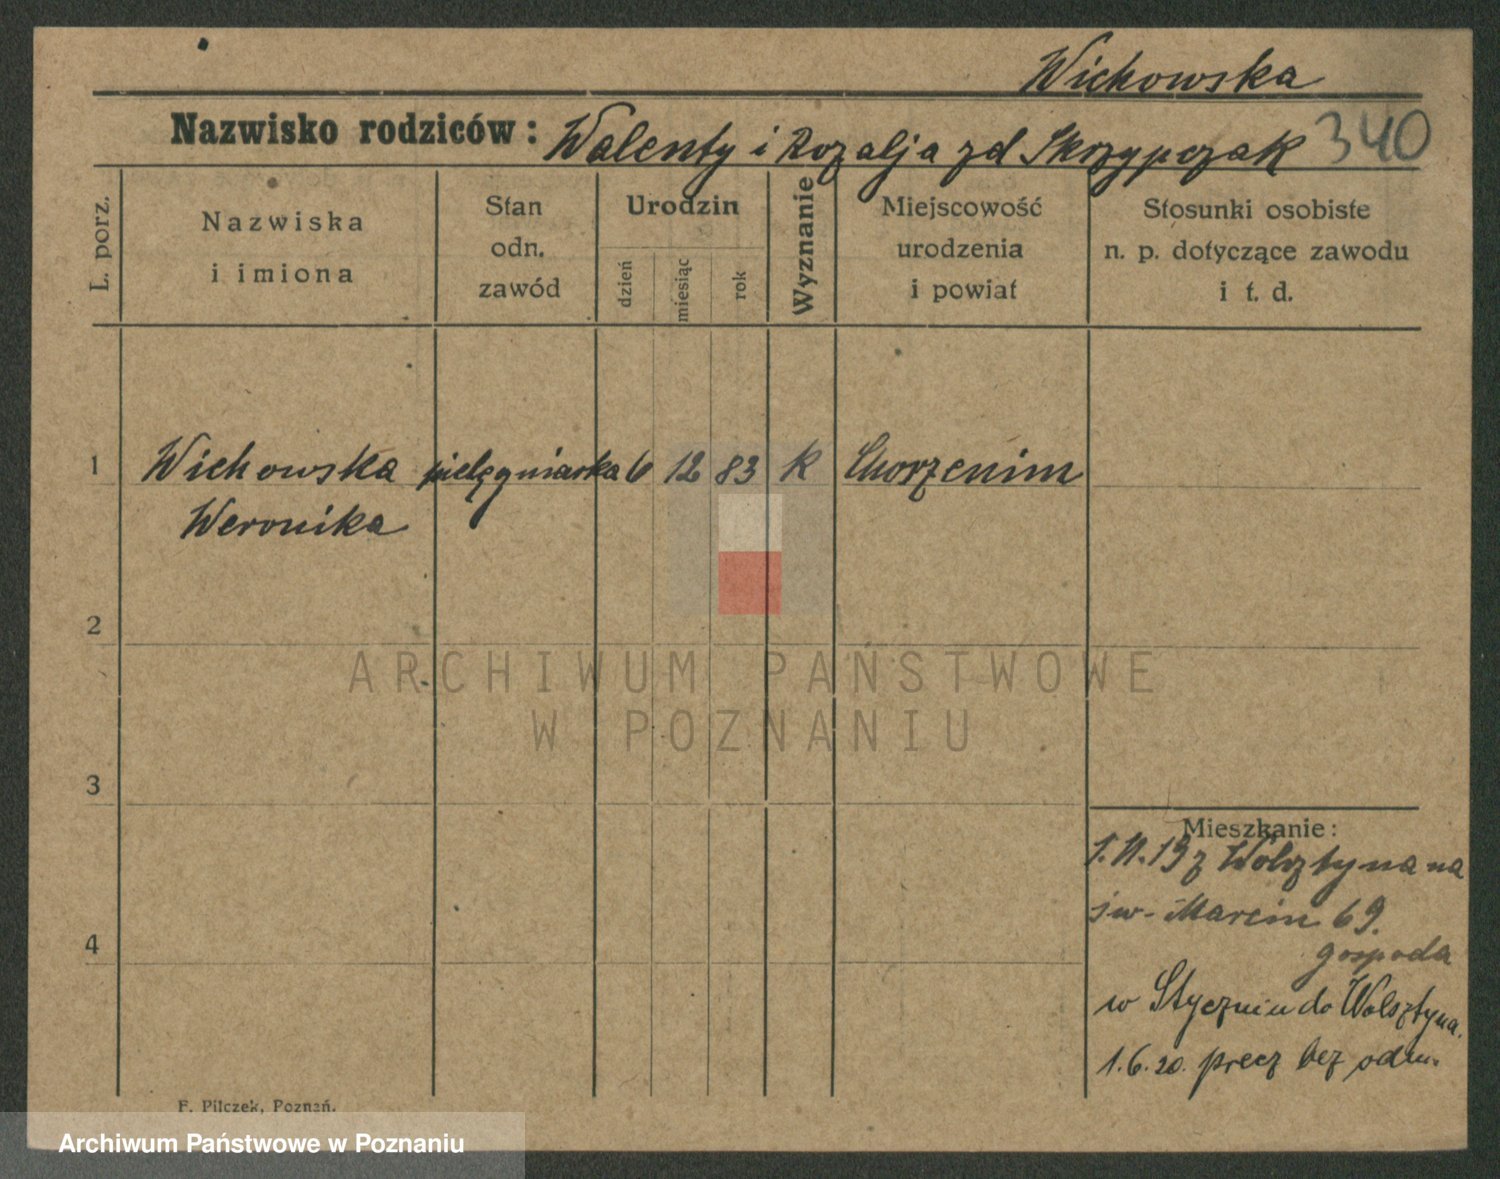 Wichowska
Nazwisko rodziców: Walenty i Rozalja zd Skrzypczak 340
L. porz.
Nazwiska
i imiona
Stan
odn.
zawód
Urodzin
dzień
miesiąc
rok
Wyznanie
Miejscowość
urodzenia
i powiat
Stosunki osobiste
n. p. dotyczące zawodu
i t. d.
1 Wichowska pielęgniarka 6 12 83 k Chorzenim
Weronika
2
ARCHIWUM PAŃSTWOWE
W POZNANIU
3
Mieszkanie:
1.11.19 z Wolsztyna na
św. Marcin 69.
gospoda
4
w Styczniu do Wolsztyna.
1.6.20. precz bez odm.
F. Pilczek, Poznań.
Archiwum Państwowe w Poznaniu